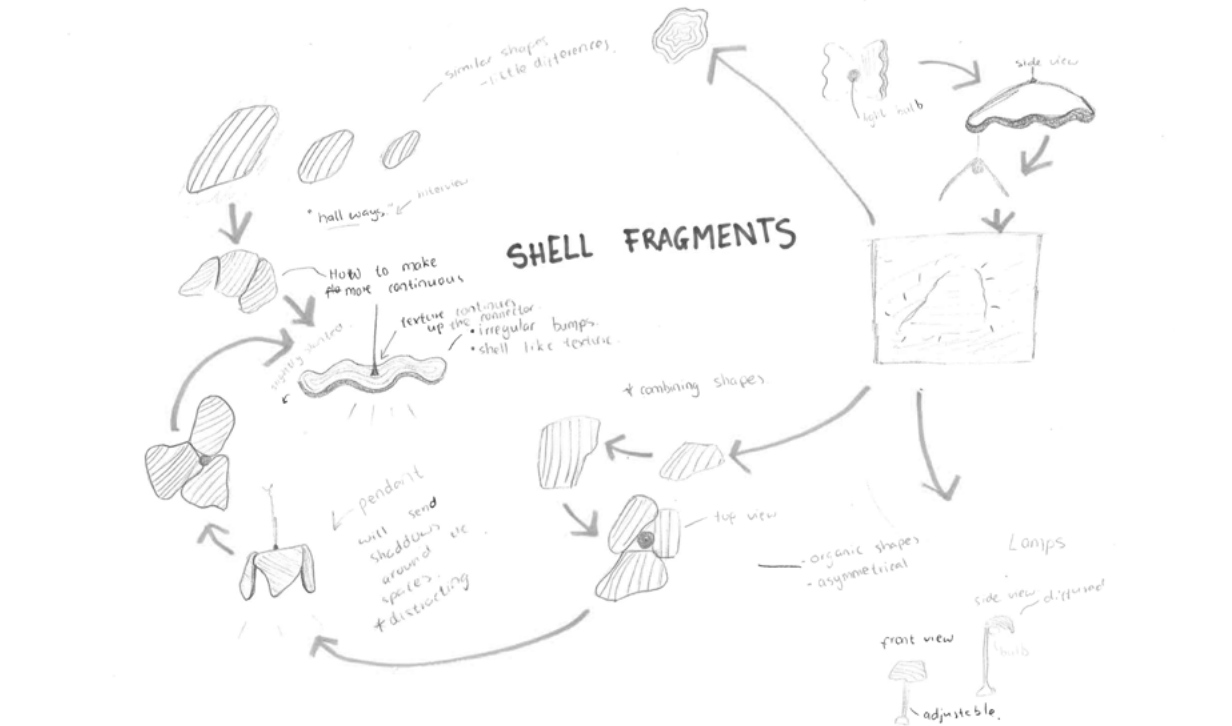 similar shapes
-little differences.
side view
light bulb
"hall ways."
interview
SHELL FRAGMENTS
HOW to make
more continuous
texture continues
up the connector.
• irregular bumps.
• shell like texture.
slightly slanted.
+ combining shapes.
pendent
will send
shaddows
around the
spaces.
+ distracting
top view
- organic shapes
- asymmetrical
Lamps
side view
diffused
bulb
front view
adjusteble.